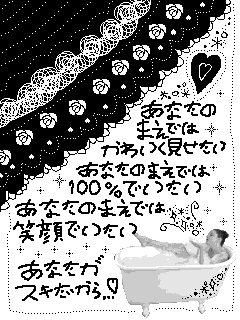 あなたの
まえでは
かわいく見せたい
あなたのまえでは
100%でいたい
あなたのまえでは
笑顔でいたい
あなたが
スキだから…!